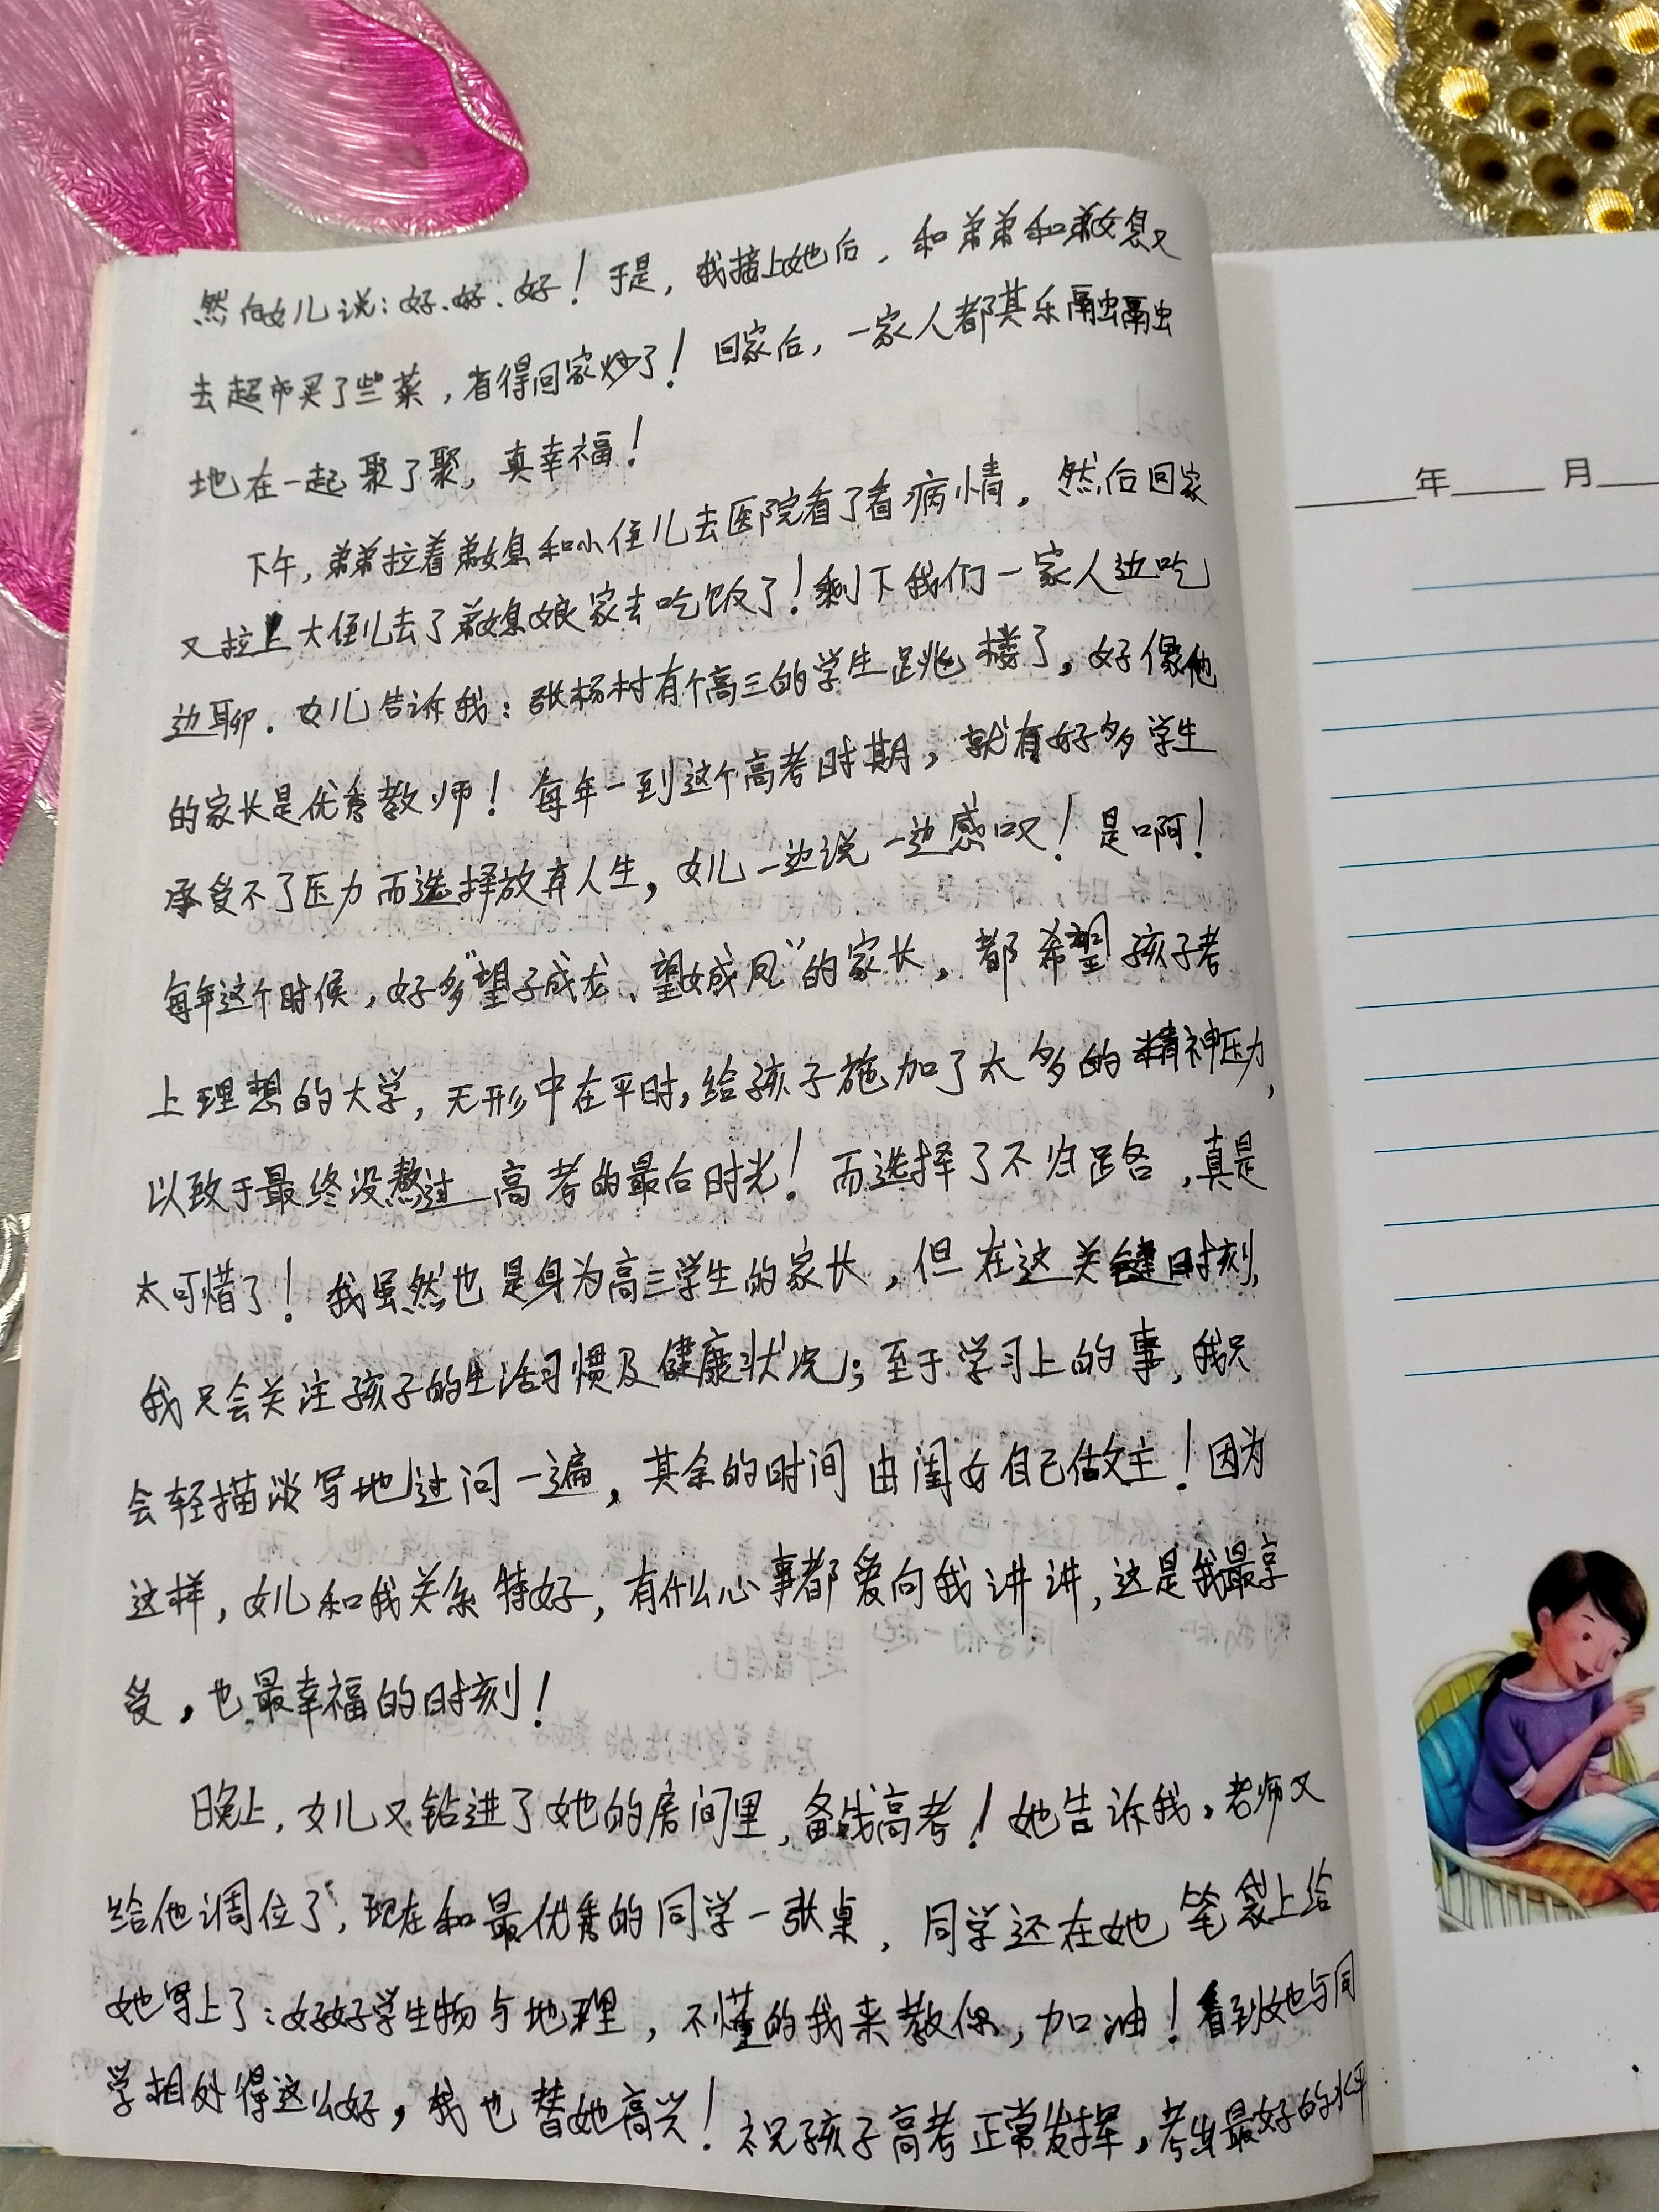 然后女儿说：好、好、好！于是，我接上她后，和弟弟和弟媳又
去超市买了些菜，省得回家炒了！回家后，一家人都其乐融融
地在一起聚了聚，真幸福！
下午，弟弟拉着弟媳和小侄儿去医院看了看病情，然后回家
又拉上大侄儿去了弟媳娘家去吃饭了！剩下我们一家人边吃
边聊．女儿告诉我：张杨村有个高三的学生跳楼了，好像他
的家长是优秀教师！每年一到这个高考时期，就有好多学生
承受不了压力而选择放弃人生，女儿一边说一边感叹！是啊！
每年这个时候，好多“望子成龙、望女成凤”的家长，都希望孩子考
上理想的大学，无形中在平时，给孩子施加了太多的精神压力，
以致于最终没熬过高考的最后时光！而选择了不归路，真是
太可惜了！我虽然也是身为高三学生的家长，但在这关键时刻，
我只会关注孩子的生活习惯及健康状况；至于学习上的事，我只
会轻描淡写地过问一遍，其余的时间由闺女自己做主！因为
这样，女儿和我关系特好，有什么心事都爱向我讲讲，这是我最享
受，也最幸福的时刻！
晚上，女儿又钻进了她的房间里，备战高考！她告诉我，老师又
给他调位了，现在和最优秀的同学一张桌，同学还在她笔袋上给
她写上了：好好学生物与地理，不懂的我来教你，加油！看到她与同
学相处得这么好，我也替她高兴！祝孩子高考正常发挥，考出最好的水平
年 月